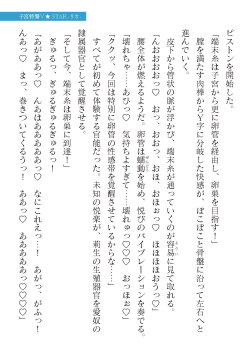 ピストンを開始した。
「端末糸は子宮から更に卵管を経由し、卵巣を目指す！」
膣を満たす肉棒からY字に分岐した快感が、ぽこぽこと骨盤に沿って左右へと
進んでいく。
皮下から管状の脈が浮かび、端末糸が通っていくのが容易に見て取れる。
「んおおおおっ♡　おっ、おほっ、おおっ、おっ♡　ほほほほおうっ♡」
腰全体が燃えるようだ。卵管は蠕動を始め、悦びのバイブレーションを奏でる。
「壊れちゃ…あひぃ♡　気持ちよすぎて…壊れゆっ♡♡　おっほぉ♡」
「ククッ、今回は特別に卵管の性感帯を覚醒させているからな…」
すべてが初めて体験する官能だった。未知の悦楽が、莉生の生殖器官を愛奴の
隷属器官として覚醒させる。
「そして今、端末糸は卵巣に到達！」
ぎゅるっ♡　ぎゅるっ♡　きゅるるっ♡
「あがああっ♡　あああっ♡　なにこれえっ…！　あが、がふっ！
んあっ♡　まっ、巻きついてくるうっ！　あああっ♡♡♡♡」